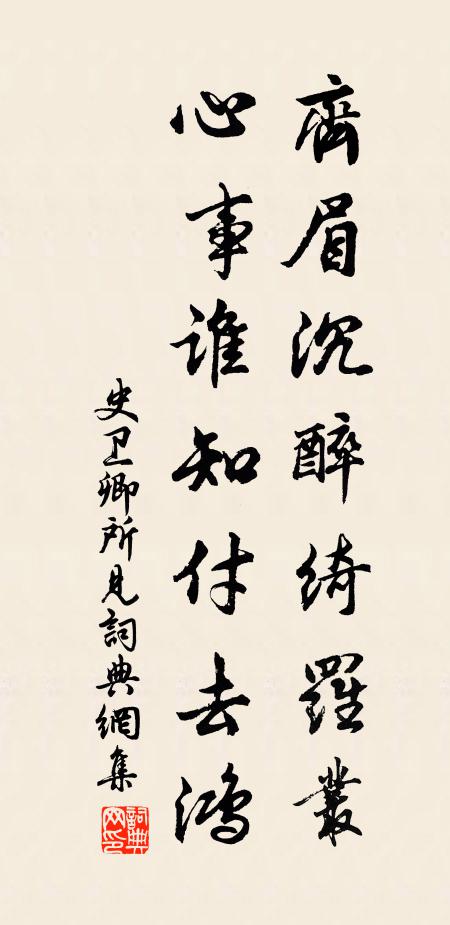 齊眉沉醉綺羅叢
心事誰知付去鴻
史卫卿所見詞典網集
詞典網印